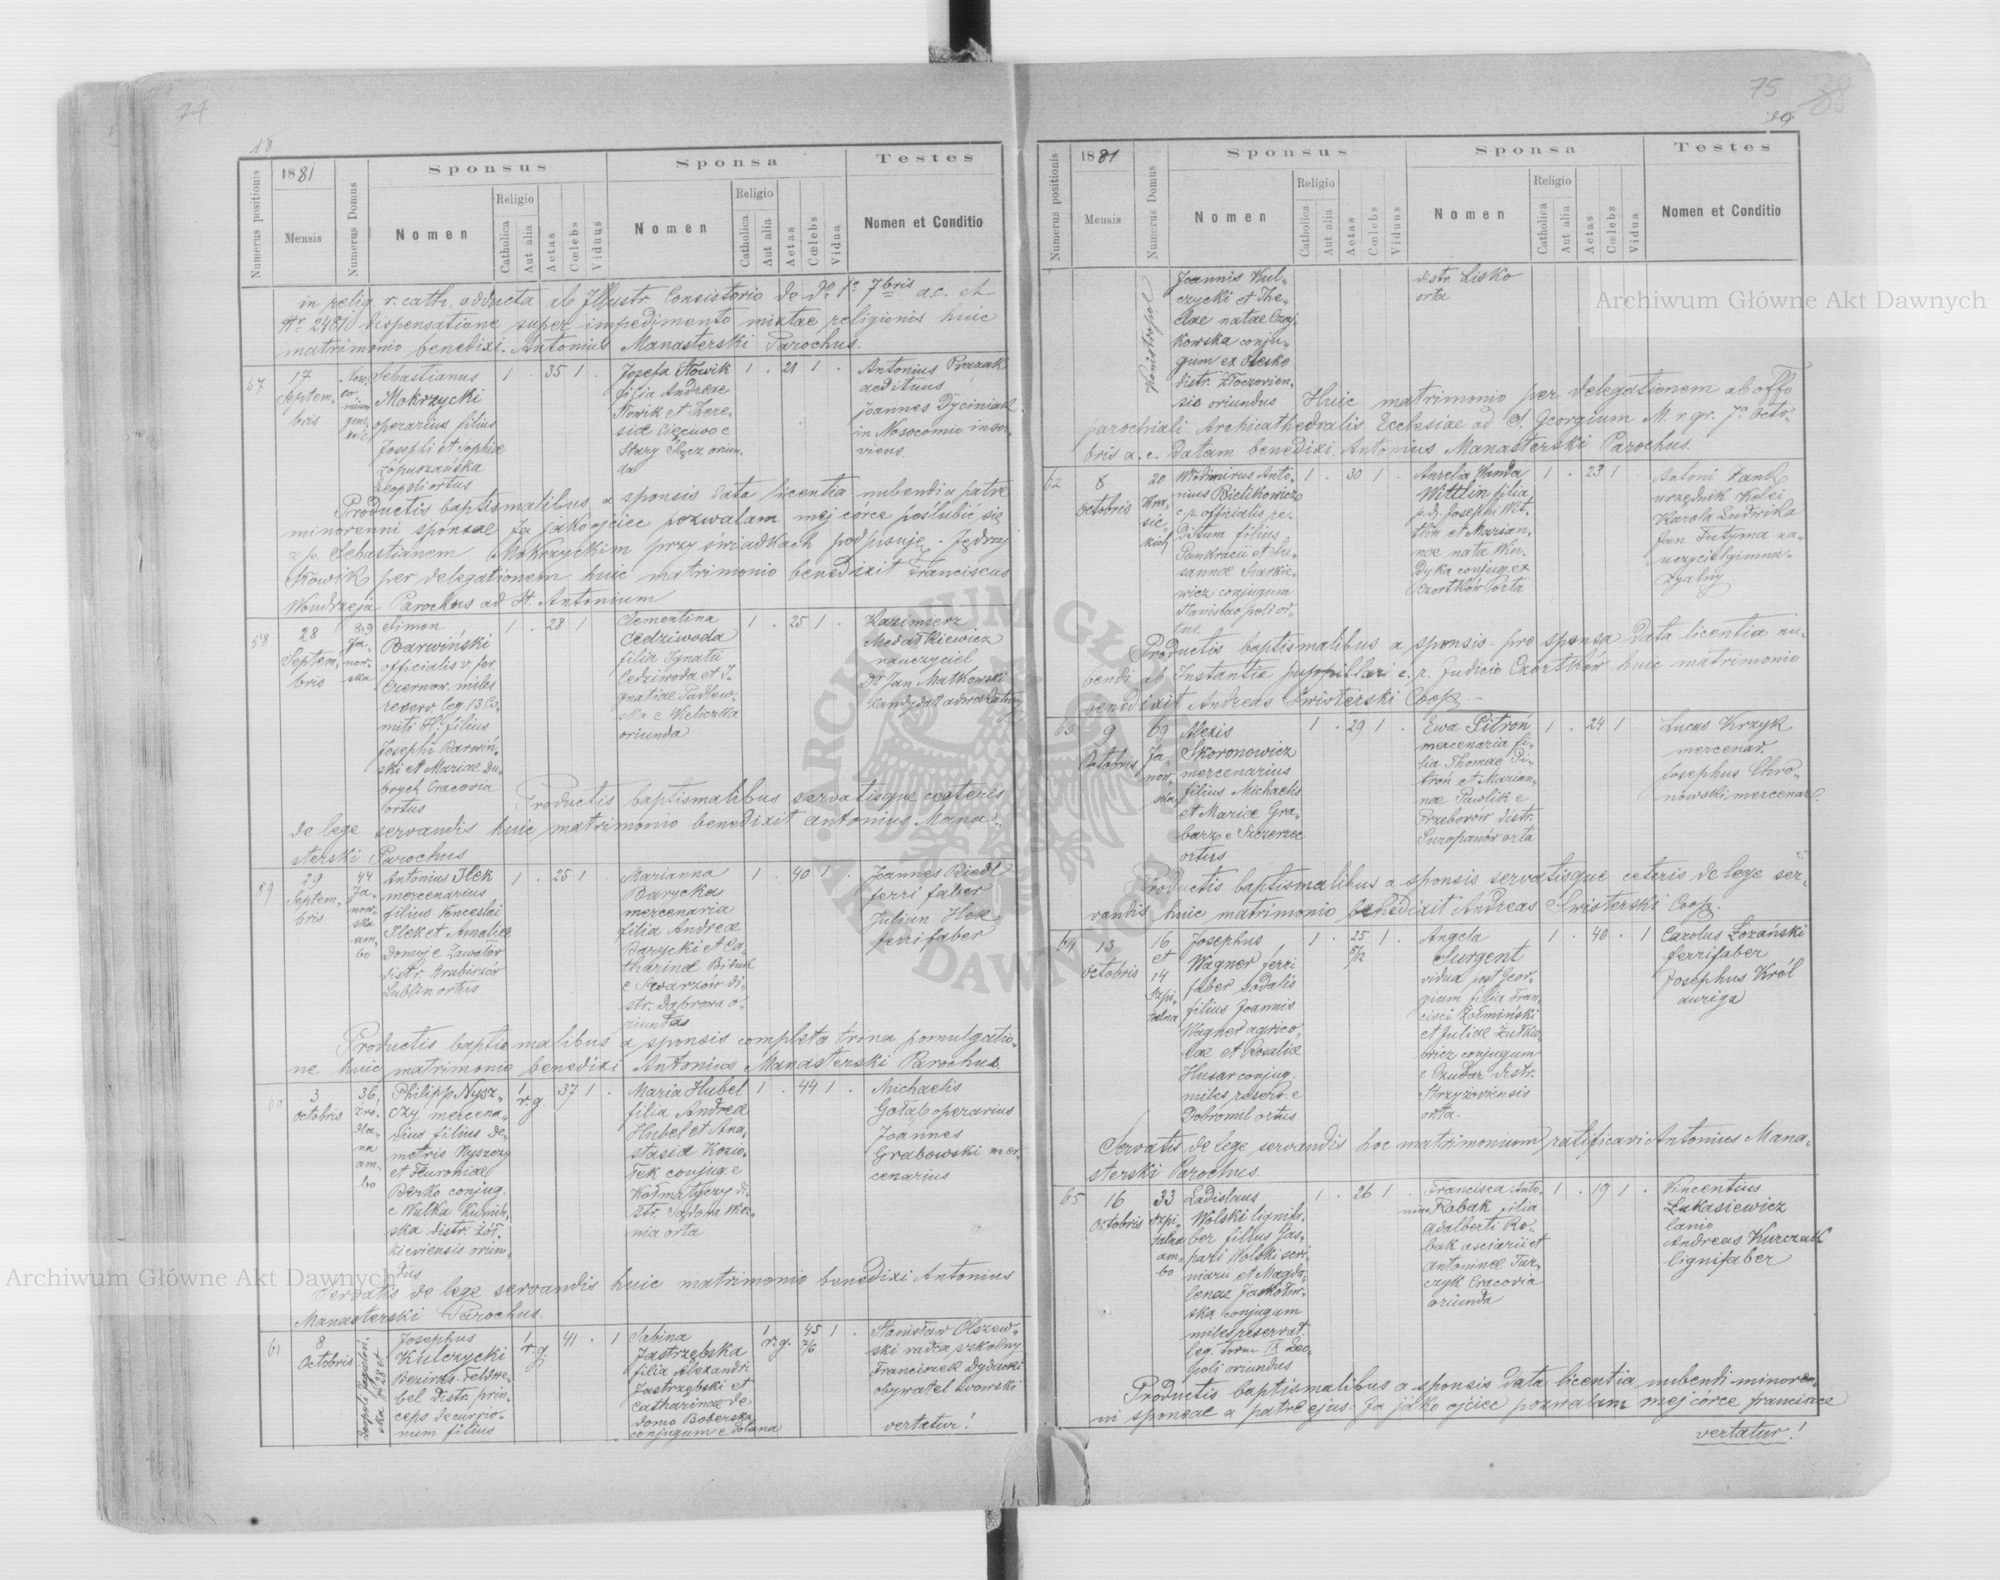 74
18
Numerus positionis
1881
Mensis
Numerus Domus
Sponsus
Nomen
Religio
Catholica
Aut alia
Aetas
Cœlebs
Viduus
Sponsa
Nomen
Religio
Catholica
Aut alia
Aetas
Cœlebs
Vidua
Testes
Nomen et Conditio
in relig. r. cath. adducta ab Illustr. Consistorio de 7bris a.c. et
dispensatione super impedimento mixtae religionis huic
matrimonio benedixi. Antonius Manasterski Parochus.
57
17
Septem-
bris
Sebastianus
Mokrzycki
operarius filius
Josephi et Sophiae
Łopuszańska
Leopoli ortus
1 . 35 1 .
Josefa Nowik
filia Andreae
Nowik et There-
siae
Stary Sącz oriun-
da
1 . 21 1 .
Antonius Prazak
aedituus
Joannes Dyciniak
in Nosocomio inser-
viens.
Productis baptismalibus a sponsis data licentia nubendi a patre
minorenni sponsae Ja jako ojciec pozwalam mej córce poślubić się
z p. Sebastianem Mokrzyckim przy świadkach podpisuję. Jędrzej
Nowik per delegationem huic matrimonio benedixit Franciscus
Parochus ad St. Antonium
58
28
Septem-
bris
Ja-
now-
ska
Simon
Barwiński
officialis
Czernow. miles
reserv. leg 13 Co-
filius
Josephi Barwiń-
ski et Mariae Du-
brych Cracovia
ortus
1 . 28 1
Clementina
Cedziwoda
filia Ignatii
Cedziwoda et I-
gnatiae Padlew-
ska e Wieliczka
oriunda
1 . 25 1 .
Kazimierz
Medałkiewicz
nauczyciel
Dr Jan Malkowski
kandydat adwokatury
Productis baptismalibus servatisque ceteris
de lege servandis huic matrimonio benedixit Antonius Mana-
sterski Parochus
59
29
Septem-
bris
44
Ja-
now-
ska
am-
bo
Antonius Ilek
mercenarius
filius Venceslai
Ilek et Amaliae
Domoj e Zawałów
distr. Hrubiszów
Lublin ortus
1 . 25 1 .
Marianna
Barycka
mercenaria
filia Andreae
Barycki et Ca-
tharinae
e Swarzów di-
str. Dąbrowa o-
riundas
1 . 40 1 .
Joannes Riedl
ferri faber
Julian Ilek
ferrifaber
Productis baptismalibus a sponsis completa trina pomulgatio-
ne huic matrimonio benedixi Antonius Manasterski Parochus.
60
3
octobris
36
am-
bo
Philipp Nysz-
czy mercena-
rius filius De-
metris Nyszczy
et Feuroniae
Berko conjug.
e Wulka Kunin-
ska distr. Żół-
kieviensis oriun-
dus
1
r. g.
37 1 .
Maria Hubel
filia Andreae
Hubel et Ana-
stasiae Konie-
Tek conjug. e
di-
str. Sądowa Wisz-
nia orta
1 . 44 1 .
Michaelis
Gołąb operarius
Joannes
Grabowski mer-
cenarius
Servatis de lege servandis huic matrimonio benedixi Antonius
Manasterski Parochus.
61
8
Octobris
Josephus
Kulczycki
Bezirks-Feldwe-
bel Distr. prin-
ceps decurrio-
num filius
1
r. g.
41 . 1
Sabina
Jastrzębska
filia Alexandri
Jastrzębski et
Catharinae de
domo Boberska
conjugum e Dolana
1
r. g.
45
7/6
1 .
Stanisław Olszew-
ski radca szkolny
Franciszek Dydacki
obywatel lwowski
vertatur!
75
19
88
Numerus positionis
1881
Mensis
Numerus Domus
Sponsus
Nomen
Religio
Catholica
Aut alia
Aetas
Cœlebs
Viduus
Sponsa
Nomen
Religio
Catholica
Aut alia
Aetas
Cœlebs
Vidua
Testes
Nomen et Conditio
Joannis Kul-
czycki et The-
clae natae Czaj-
kowska conju-
gum ex Olesko
distr. Złoczovien-
sis oriundus
distr. Lisko
orta
Huic matrimonio per delegationem ab offo
parochiali Archicathedralis Ecclesiae ad S. Georgium M. r. gr. 7a Octo-
bris a. c. datam benedixi. Antonius Manasterski Parochus.
62
8
octobris
20
Kra-
sic-
kich
Wlodimirus Anto-
nius Bielikowicz
c. r. officialis pe-
ditum filius
Pankracii et Su-
sannae Siarkie-
wicz conjugum
Stanislaopoli or-
tus.
1 . 30 1 .
Aurelia Wanda
Wittlin filia
p. d. Josephi Wit-
tlin et Marian-
nae nata Ku-
dyka conjug. ex
Czortków orta
1 . 23 1
Antoni
urzędnik Kolei
Karola Ludwika
Jan Tutyma na-
uczyciel gimna-
zyalny
Productis baptismalibus a sponsis. pro sponsa data licentia nu-
bendi ab Instantie puppillari c. r. Judicio Czortków huic matrimonio
benedixit Andreas Swisterski Coop.
63
9
Octobris
69
Ja-
now-
ska
Alexis
Skoronowicz
mercenarius
filius Michaelis
et Mariae Gra-
barz e Szczerzec
ortus
1 . 29 1 .
Ewa Pitroń
mercenaria fi-
lia Thomae Pi-
troń et Marian-
nae Pawlik e
Przeborów distr.
orta
1 . 24 1
Lucas Krzyk
mercenar.
Josephus Chro-
nowski mercenar.
Productis baptismalibus a sponsis servatisque ceteris de lege ser-
vandis, huic matrimonio benedixit Andreas Swisterski Coop.
64
13
octobris
16
et
14
Szpi-
talna
Josephus
Wagner ferri
faber sodalis
filius Joannis
Wagner agrico-
lae et Rosaliae
Husar conjug.
miles reserv. e
Dobromil ortus
1 .
25
8/12
1 .
Angela
Surgent
vidua post Geor-
gium filia Fran-
cisci Łomiński
et Juliae Żutkie-
wicz conjugum
e Czudar distr.
Strzyżoviensis
orta.
1 . 40 . 1
Carolus Łozański
ferrifaber
Josephus Król
auriga
Servatis de lege servandis hoc matrimonium ratificavi Antonius Mana-
sterski Parochus.
65
16
Octobris
33
Szpi-
talna
am-
bo
Ladislaus
Wolski lignifa-
ber filius Jas-
pari Wolski scri-
niarii et Magda-
lenae
conjugum
miles reservat.
leg. IX Leo-
poli oriundus
1 . 26 1 .
Francisca Anto-
nina Robak filia
Adalberti Ro-
bak asciarii et
Antoninae Tur-
czyk Cracovia
oriunda
1 . 19 1 .
Vincentius
Łukasiewicz
lanio
Andreas Kurczak
lignifaber
Productis baptismalibus a sponsis data licentia nubendi minoren-
ni sponsae a patre ejus. Ja jako ojciec pozwalam mej córce Francisce
vertatur!
Archiwum Główne Akt Dawnych
Archiwum Główne Akt Dawnych
ARCHIWUM GŁÓWNE AKT DAWNYCH